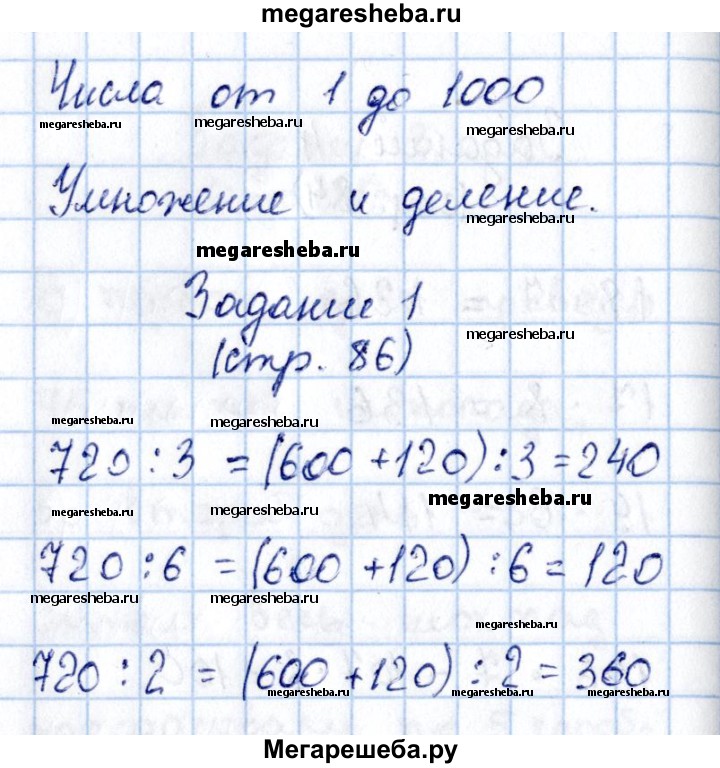 megaresheba.ru
Числа от 1 до 1000
megaresheba.ru megaresheba.ru megaresheba.ru
Умножение и деление.
megaresheba.ru
megaresheba.ru
Задание 1
megaresheba.ru
(стр. 86)
megaresheba.ru megaresheba.ru
720 : 3 = (600 + 120) : 3 = 240
megaresheba.ru
megaresheba.ru megaresheba.ru
720 : 6 = (600 + 120) : 6 = 120
megaresheba.ru megaresheba.ru
megaresheba.ru
720 : 2 = (600 + 120) : 2 = 360
megaresheba.ru megaresheba.ru megaresheba.ru
Мегарешеба.ру